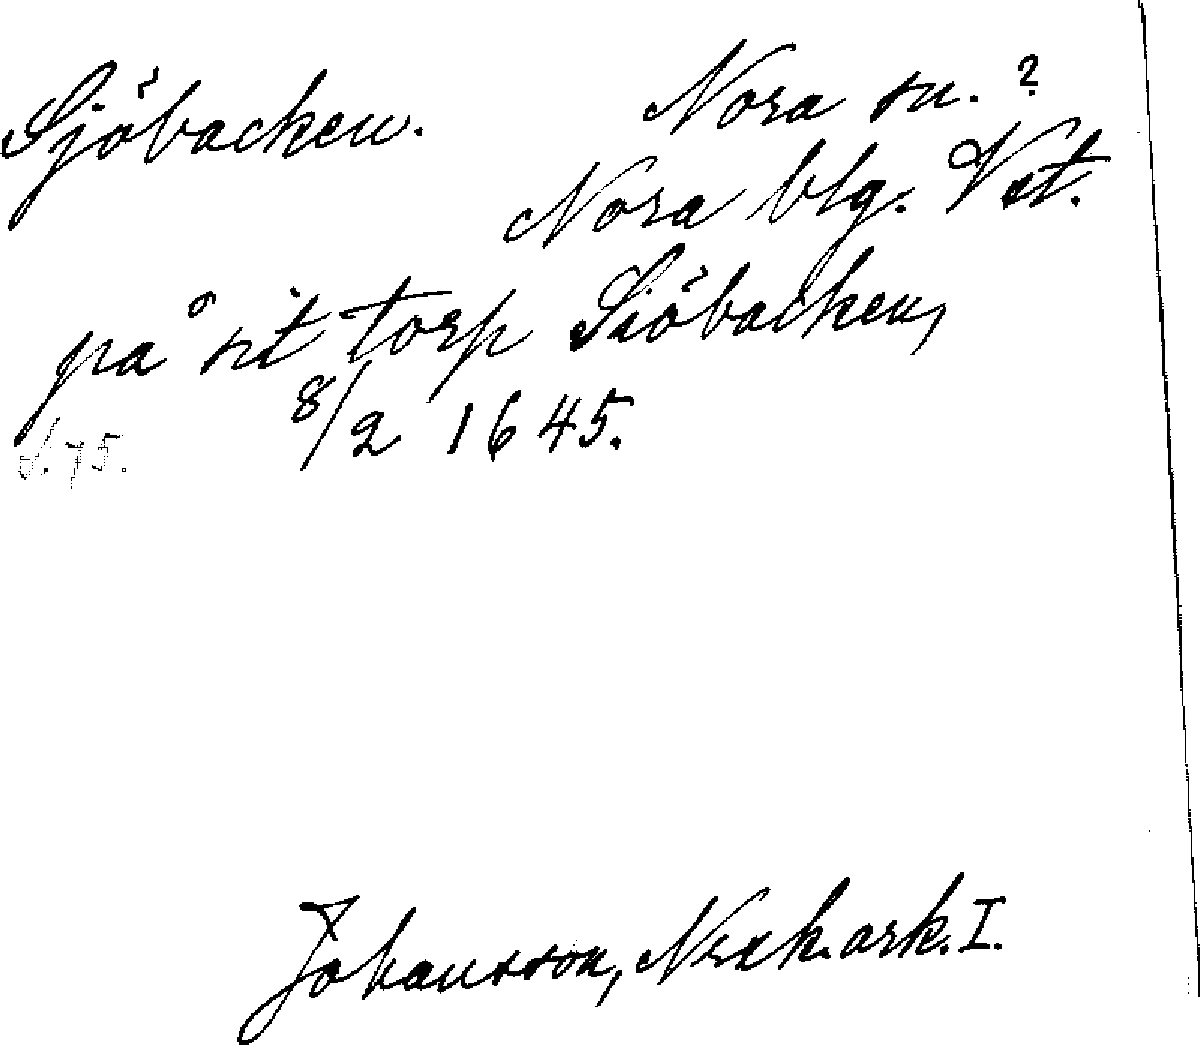 Sjöbacken. Nora sn. ?
Nora blg. Vst.
på sit torp Siöbacken,
8/2 1645.
S. 75.
Johansson, Norak. ark. I.